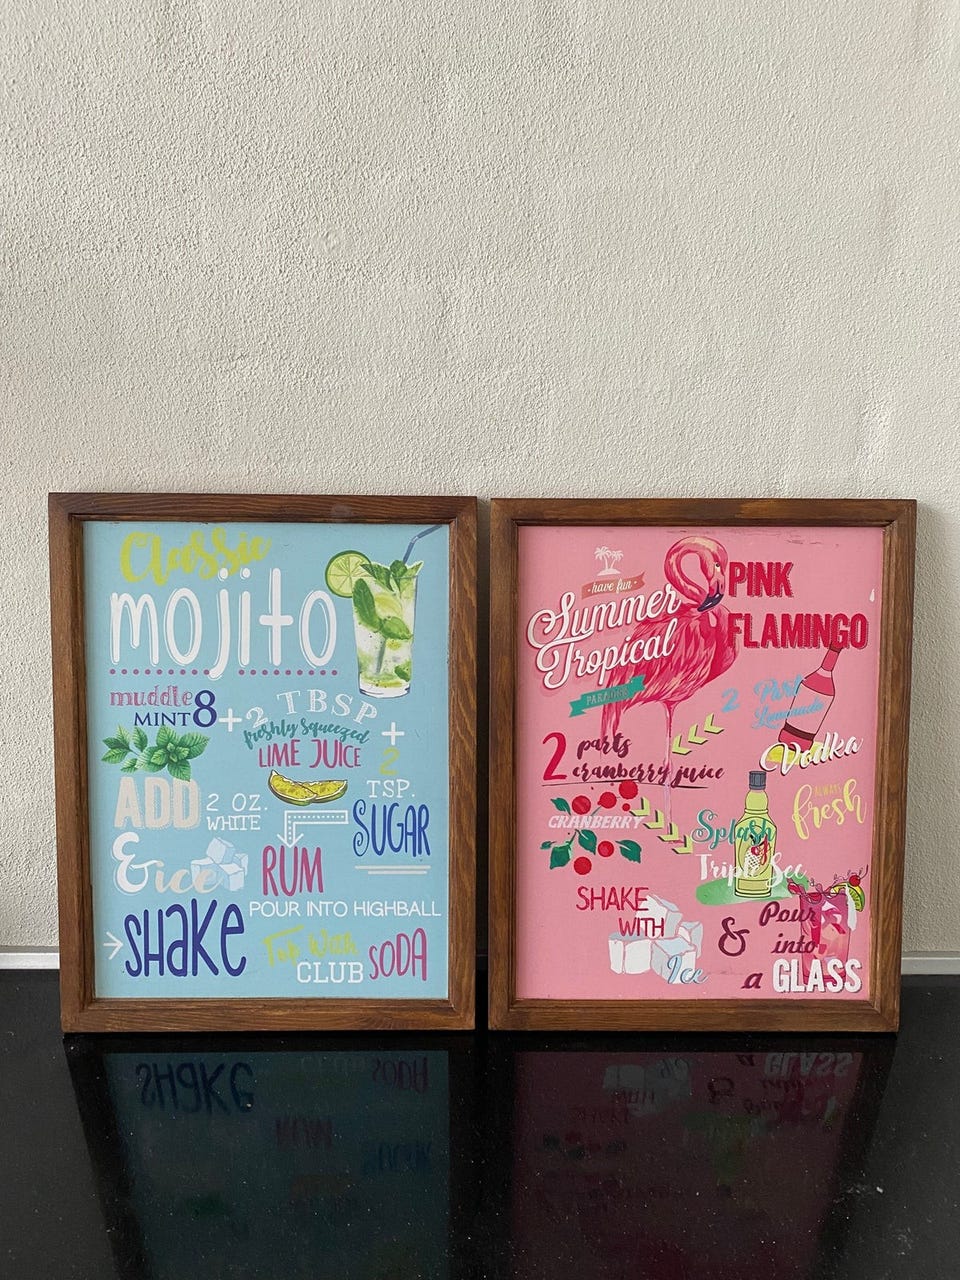 Classic
mojito
muddle
MINT 8
+ 2 TBSP
freshly squeezed
LIME JUICE
+
2
TSP.
SUGAR
ADD 2 OZ.
WHITE
RUM
& ice
SHAKE
POUR INTO HIGHBALL
Top With
CLUB SODA
have fun
Summer
Tropical
PARADISE
PINK
FLAMINGO
2 Part
Lemonade
Vodka
2 parts
cranberry juice
CRANBERRY
ALWAYS
fresh
Splash
of
Triple Sec
SHAKE
WITH
Ice
& Pour
into
a GLASS